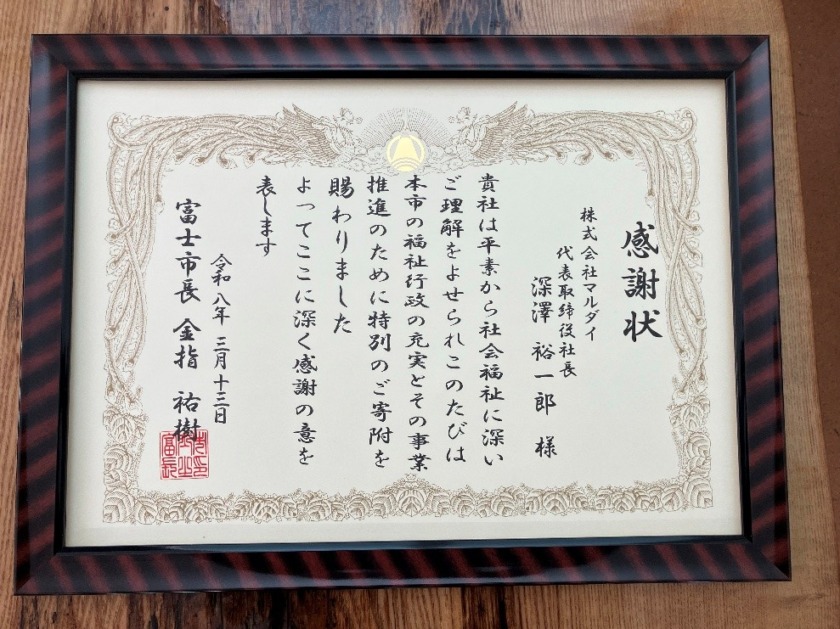 感謝状
株式会社マルダイ
代表取締役社長
深澤 裕一郎 様
貴社は平素から社会福祉に深い
ご理解をよせられこのたびは
本市の福祉行政の充実とその事業
推進のために特別のご寄附を
賜わりました
よってここに深く感謝の意を
表します
令和八年 三月 十三日
富士市長 金指 祐樹